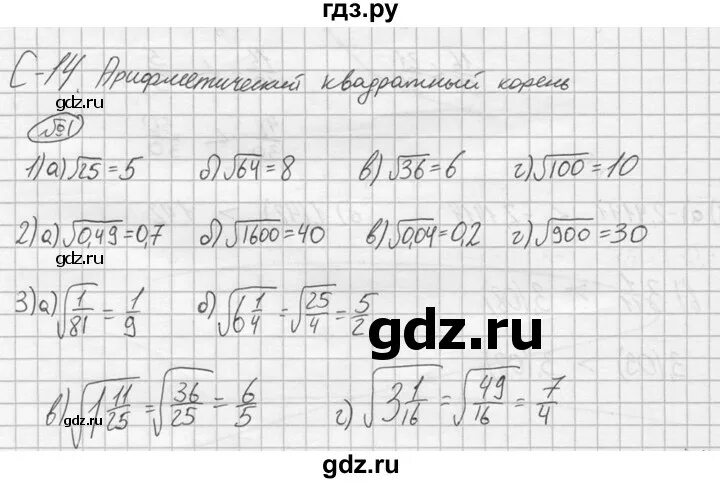 гдз.рф
С-14 Арифметический квадратный корень
gdz.ru gdz.ru
№1
1) а) √25 = 5 б) √64 = 8 в) √36 = 6 г) √100 = 10
2) а) √0,49 = 0,7 б) √1600 = 40 в) √0,04 = 0,2 г) √900 = 30
gdz.ru gdz.ru
3) а) √(1/81) = 1/9 б) √(6 1/4) = √(25/4) = 5/2
gdz.ru
в) √(1 11/25) = √(36/25) = 6/5 г) √(3 1/16) = √(49/16) = 7/4
gdz.ru gdz.ru
gdz.ru